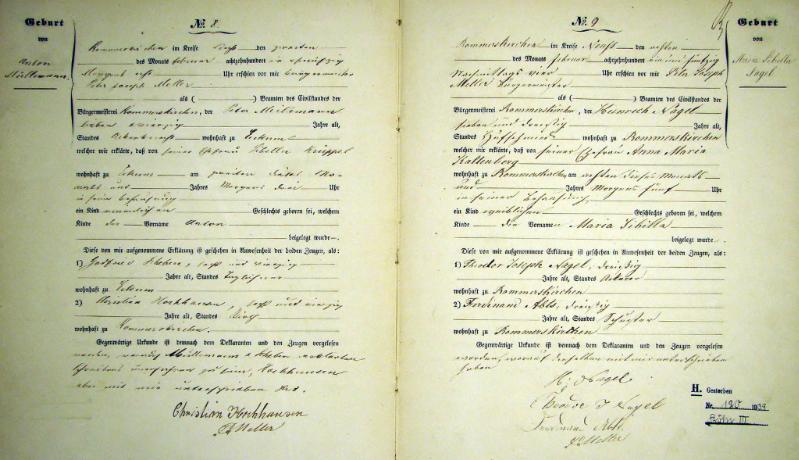 No. 8.
Geburt
von
Anton
im Kreise Neuss den zweiten
des Monats Februar achtzehnhundert ein und fünfzig
Morgens Uhr erschien vor mir Bürgermeister
Peter Joseph Meller
als ( ) Beamten des Civilstandes der
Bürgermeisterei Rommerskirchen, der Peter
sieben und vierzig Jahre alt,
Standes wohnhaft zu Eckum
welcher mir erklärte, daß von seiner Ehefrau Sibilla
wohnhaft zu Eckum am zweiten dieses Mo-
nats und Jahres Morgens drei Uhr
in seiner Behausung
ein Kind männlichen Geschlechts geboren sei, welchem
Kinde der Vorname Anton
beigelegt wurde.
Diese von mir aufgenommene Erklärung ist geschehen in Anwesenheit der beiden Zeugen, als:
1) und vierzig
Jahre alt, Standes Taglöhner
wohnhaft zu Eckum
2) Christian Horchhausen, und vierzig
Jahre alt, Standes Wirth
wohnhaft zu Rommerskirchen.
Gegenwärtige Urkunde ist demnach dem Deklaranten und den Zeugen vorgelesen
worden,
zu sein, Horchhausen
aber mit mir unterschrieben hat.
Christian Horchhausen
PJ Meller
No. 9
Geburt
von
Maria Sibilla
Nagel
Rommerskirchen im Kreise Neuß den ersten
des Monats Februar achtzehnhundert ein und fünfzig
Nachmittags vier Uhr erschien vor mir Peter Joseph
Meller Bürgermeister
als ( ) Beamten des Civilstandes der
Bürgermeisterei Rommerskirchen, der Heinrich Nagel
sieben und dreißig Jahre alt,
Standes Hufschmied wohnhaft zu Rommerskirchen
welcher mir erklärte, daß von seiner Ehefrau Anna Maria
Kallenberg
wohnhaft zu Rommerskirchen am ersten dieses Monats
und Jahres Morgens fünf Uhr
in seiner Behausung
ein Kind weiblichen Geschlechts geboren sei, welchem
Kinde die Vornamen Maria Sibilla
beigelegt wurde.
Diese von mir aufgenommene Erklärung ist geschehen in Anwesenheit der beiden Zeugen, als:
1) Theodor Joseph Nagel, dreißig
Jahre alt, Standes Ackerer
wohnhaft zu Rommerskirchen
2) Ferdinand Abts, dreißig
Jahre alt, Standes Schuster
wohnhaft zu Rommerskirchen
Gegenwärtige Urkunde ist demnach dem Deklaranten und den Zeugen vorgelesen
worden, worauf dieselben mit mir unterschrieben
haben
H. Nagel
J Nagel
Ferdinand Abts.
PJ Meller
H. Gestorben
Nr. 130
Köln III